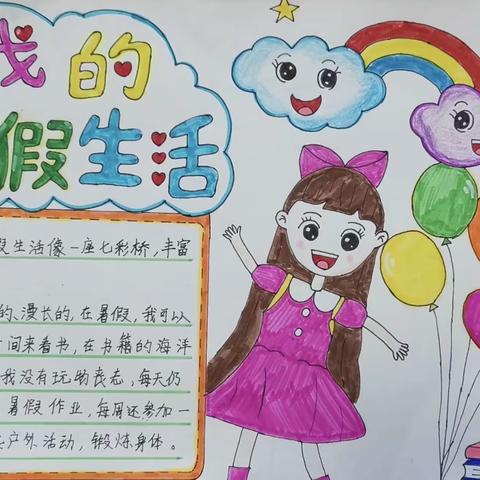 我的
假生活
生活像一座七彩桥，丰富
的、漫长的，在暑假，我可以
间来看书，在书籍的海洋
我没有玩物丧志，每天仍
暑假作业，每周还参加一
户外活动，锻炼身体。